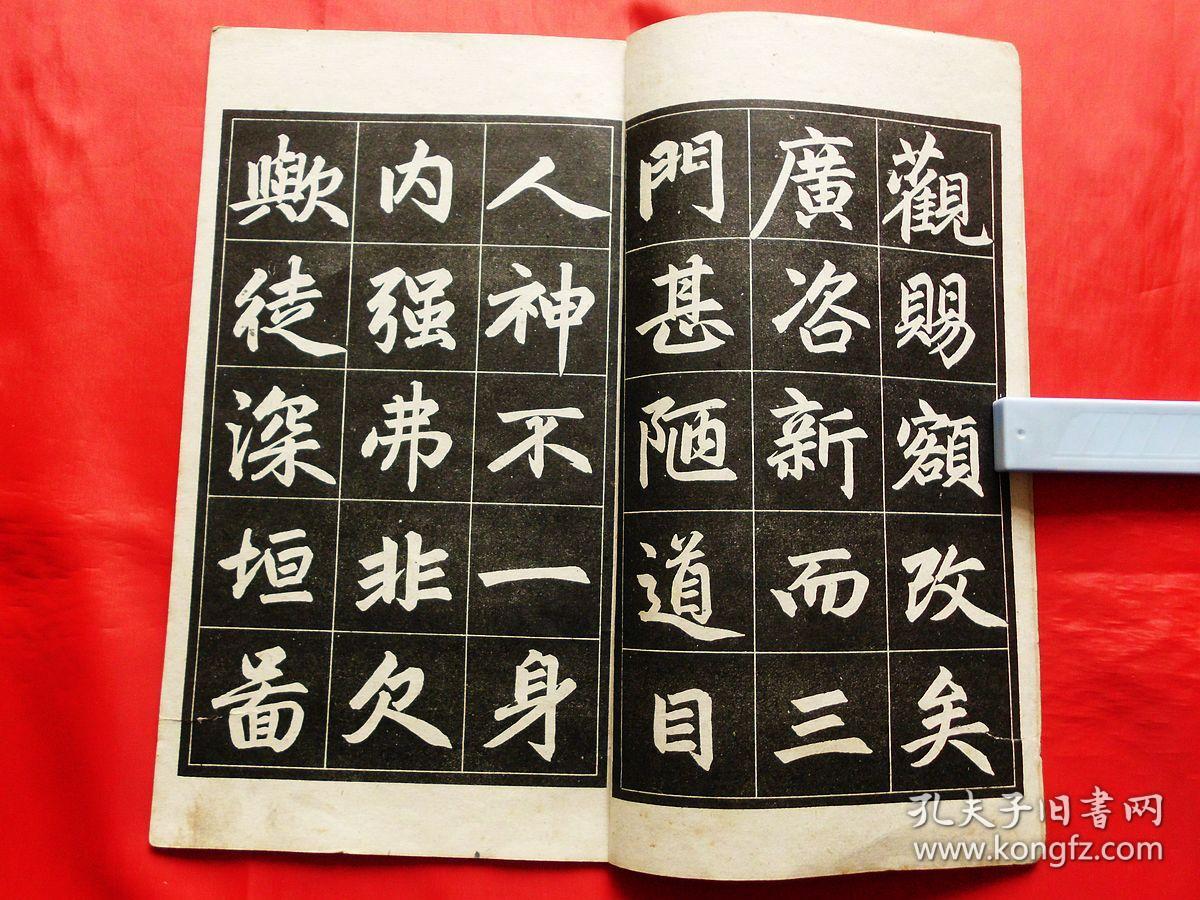 觀賜額改矣
廣咨新而三
門甚陋道目
人神不一身
内强弗非欠
歟徒深垣啚
孔夫子旧书网
www.kongfz.com